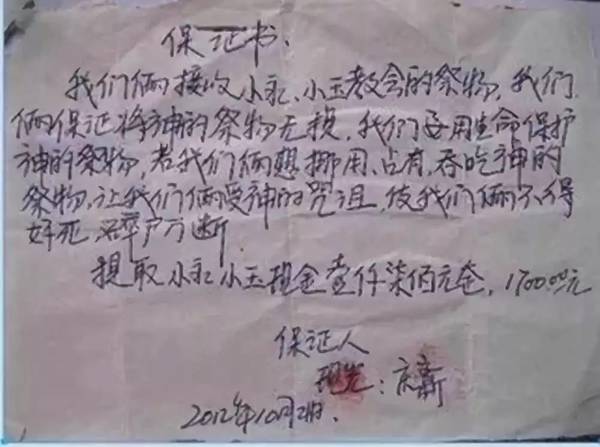 保证书、
我们俩接收小永、小玉教会的祭物，我们
俩保证将神的祭物无损，我们要用生命保护
神的祭物，若我们俩想挪用、占有、吞吃神的
祭物，让我们俩受神的咒诅，使我们俩不得
好死，碎尸万断
提取小永小玉现金壹仟柒佰元全，1700.00元
保证人
2012年10月2